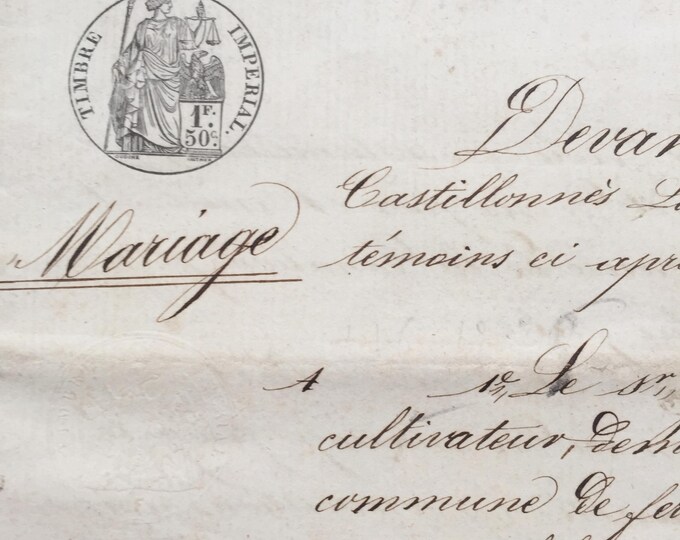 TIMBRE IMPERIAL.
1F.
50c.
Devan
Castillonnès
Mariage
témoins ci apr
A 1e, Le Sr,
cultivateur, dem
commune de